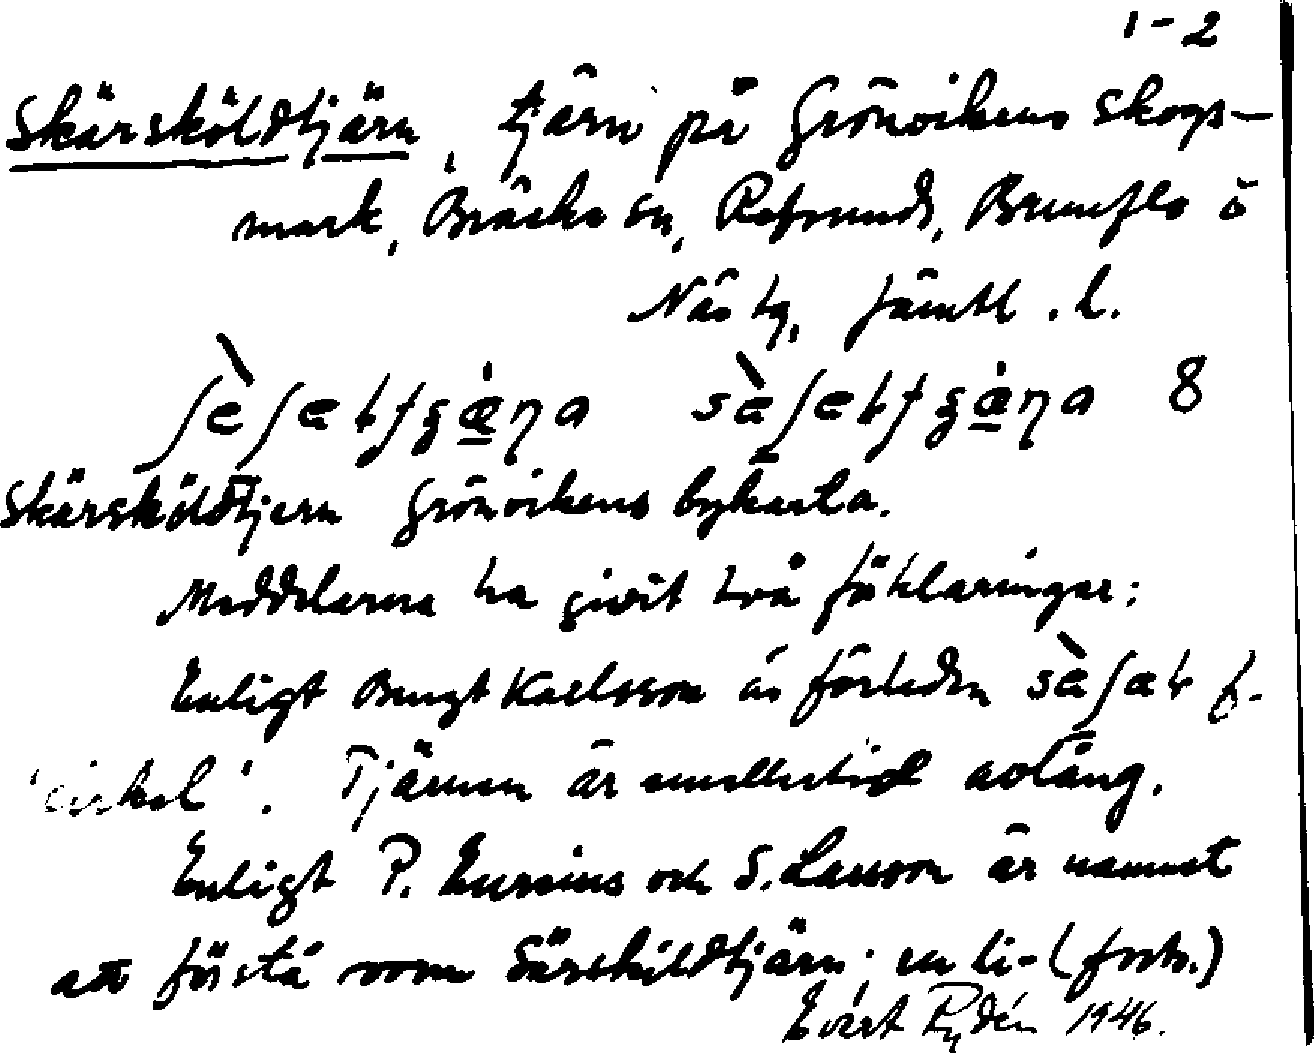 1-2
Skärsköldtjärn, tjärn på Grönvikens skogs-
mark, Bräcke sn, Refsunds, Brunflo o
Näs tg, Jämtl. l.
8
Skärsköldtjern Grönvikens bykarta.
Meddelarna ha givit två föklaringar:
Enligt Bengt Karlsson är förleden f.
'cirkel'. Tjärnen är emellertid avlång.
Enligt P. och S. Larsson är namnet
att förstå som Särskildtjärn; en li- (forts.)
Evert Rydén 1946.